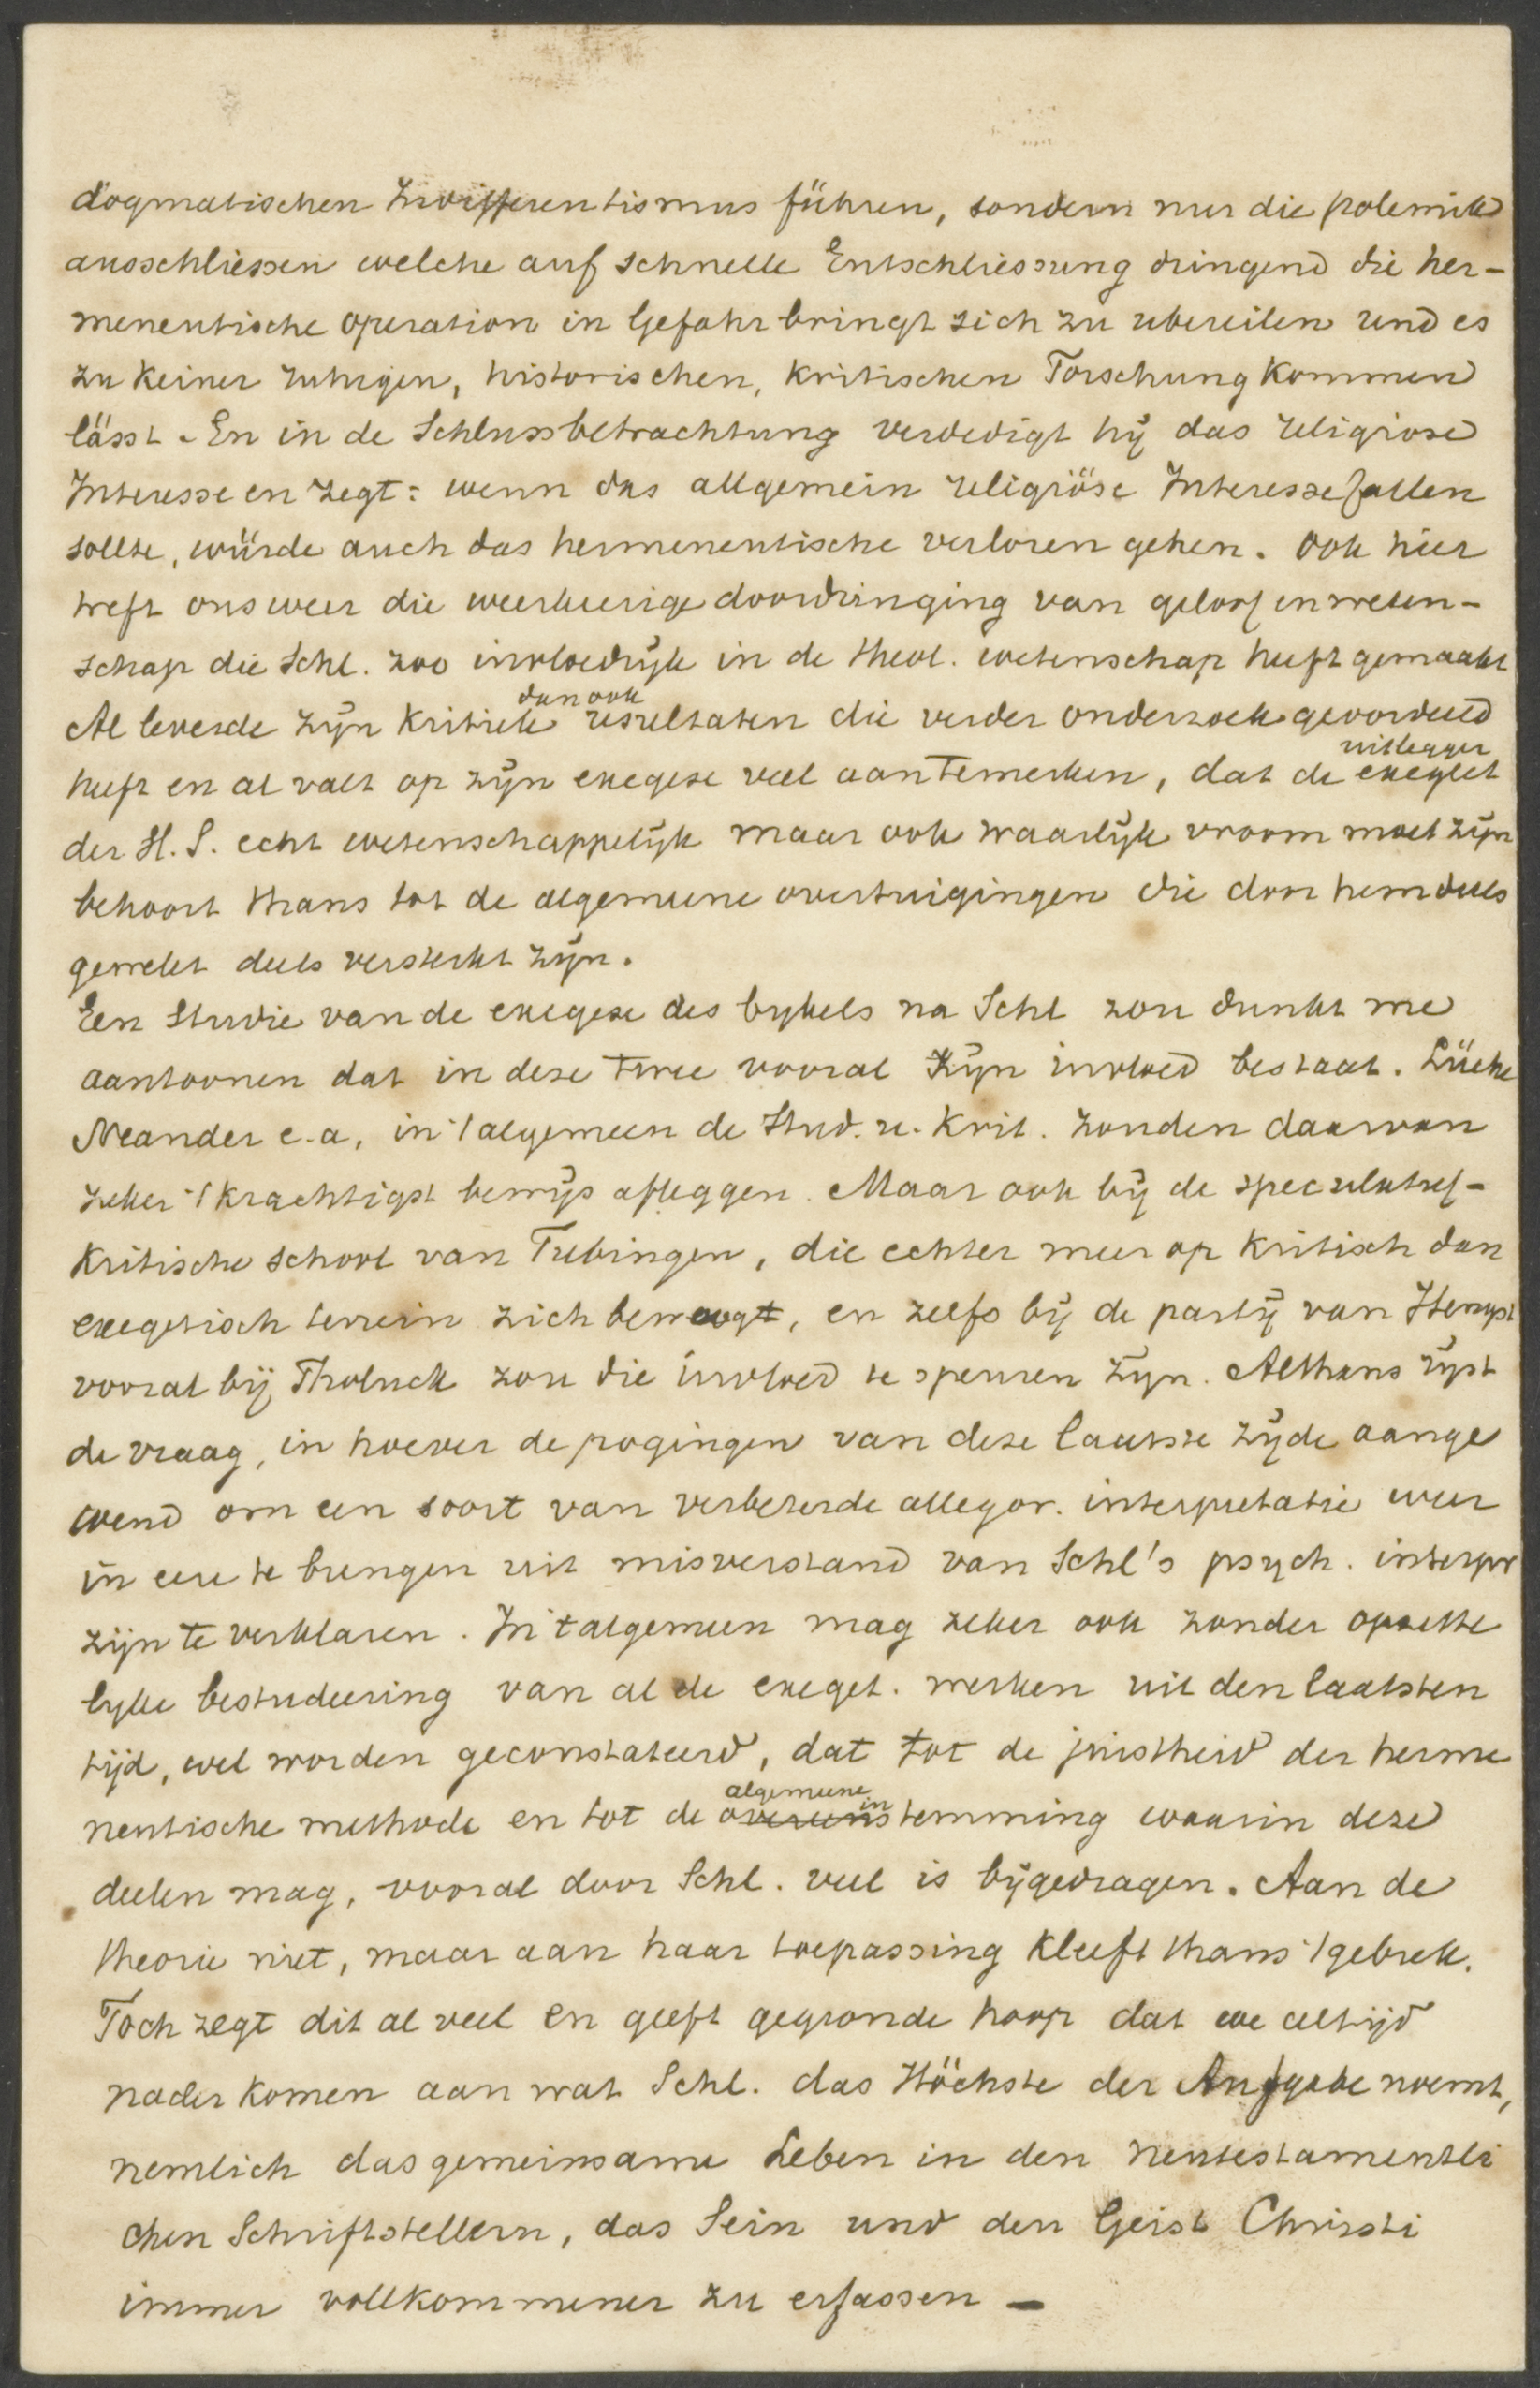 dogmatischen Indifferentismus führen, sondern nur die polemik
ausschliessen welche auf schnelle Entschliessung dringend die her-
meneutische operation in Gefahr bringt sich zu ubereilen und es
zu keiner ruhigen, historischen, kritischen Forschung kommen
lässt. En in de Schlussbetrachtung verdedigt hij das religiose
Interesse en zegt: wenn das allgemein religiöse Interesse fallen
sollte, würde auch das hermeneutische verloren gehen. Ook hier
treft ons weer die weerkeerige doordringing van geloof en weten-
schap die Schl. zoo invloedrijk in de theol. wetenschap heeft gemaakt
Al leverde zijn kritiek dan ook resultaten die verder onderzoek geoordeeld
heeft en al valt op zijn exegese veel aan te merken, dat de exegeet uitlegger
der H. S. echt wetenschappelijk maar ook waarlijk vroom moet zijn
behoort thans tot de algemeene overtuigingen die door hem deels
gewekt deels versterkt zijn.
Een studie van de exegese des bybels na Schl zou dunkt me
aantoonen dat in deze twee vooral zijn invloed bestaat. Lücke
Neander e.a, in 't algemeen de Stud. u. Krit. zouden daarvan
zeker 't krachtigst bewijs afleggen. Maar ook bij de speculatief-
kritische school van Tubingen, die echter meer op kritisch dan
exegetisch terrein zich beweegt, en zelfs bij de partij van Hengst
vooral bij Tholuck zou die invloed te speuren zijn. Althans rijst
de vraag, in hoever de pogingen van deze laatste zijde aange
wend om een soort van verbeterde allegor. interpretatie weer
in eere te brengen uit misverstand van Schl's psych. interpr
zijn te verklaren. In 't algemeen mag zeker ook zonder opzette
lyke bestudeering van al de exeget. werken uit den laatsten
tijd, wel worden geconstateerd, dat tot de juistheid der herme
neutische methode en tot de algemeene overeeninstemming waarin deze
deelen mag, vooral door Schl. veel is bijgedragen. Aan de
theorie niet, maar aan haar toepassing kleeft thans 't gebrek.
Toch zegt dit al veel en geeft gegronde hoop dat we altijd
nader komen aan wat Schl. das Höchste der Aufgabe noemt,
nemlich das gemeinsame Leben in den neutestamentli
chen Schriftstellern, das Sein und den Geist Christi
immer vollkommener zu erfassen —